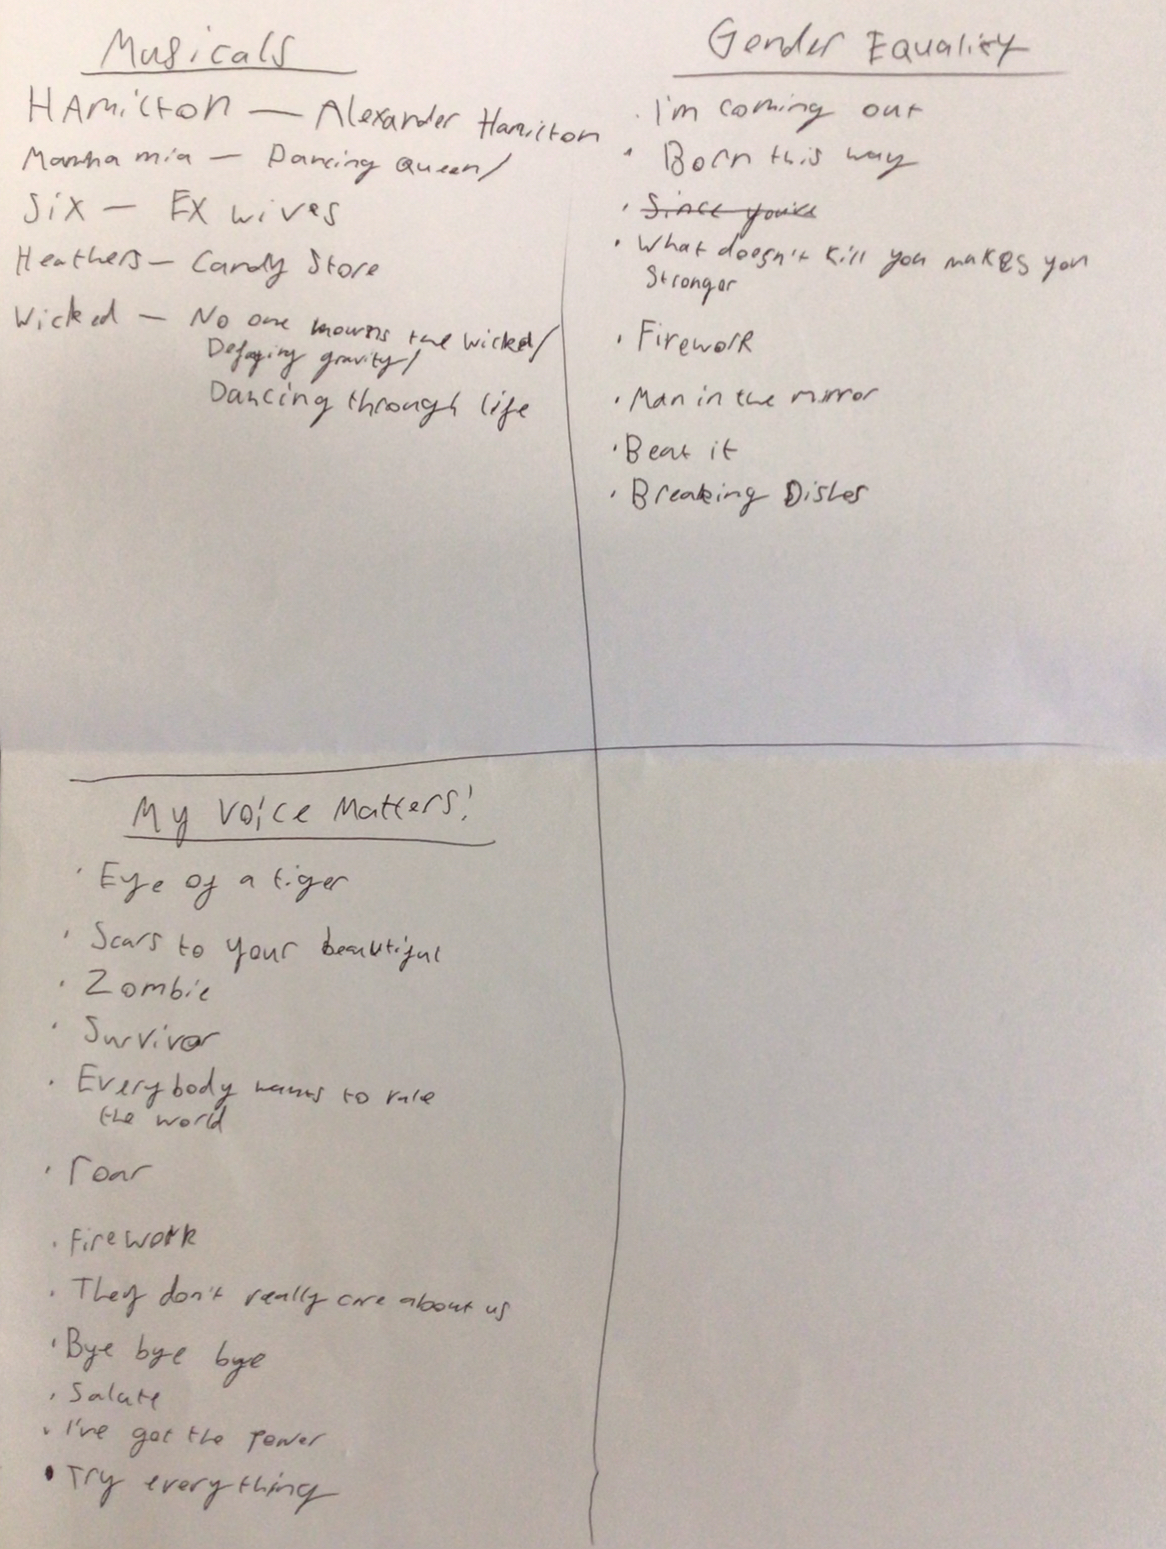 Musicals
HAmilton — Alexander Hamilton
Mamma mia — Dancing Queen/
Six — Ex wives
Heathers — Candy Store
Wicked — No one mourns the wicked/
Defying gravity/
Dancing through life
Gender Equality
· I'm coming out
· Born this way
· What doesn't kill you makes you
Stronger
· Firework
· Man in the mirror
· Beat it
· Breaking Dishes
My Voice Matters!
· Eye of a tiger
· Scars to your beautiful
· Zombie
· Survivor
· Everybody wants to rule
the world
· roar
· firework
· They don't really care about us
· Bye bye bye
· Salute
· I've got the power
· Try everything